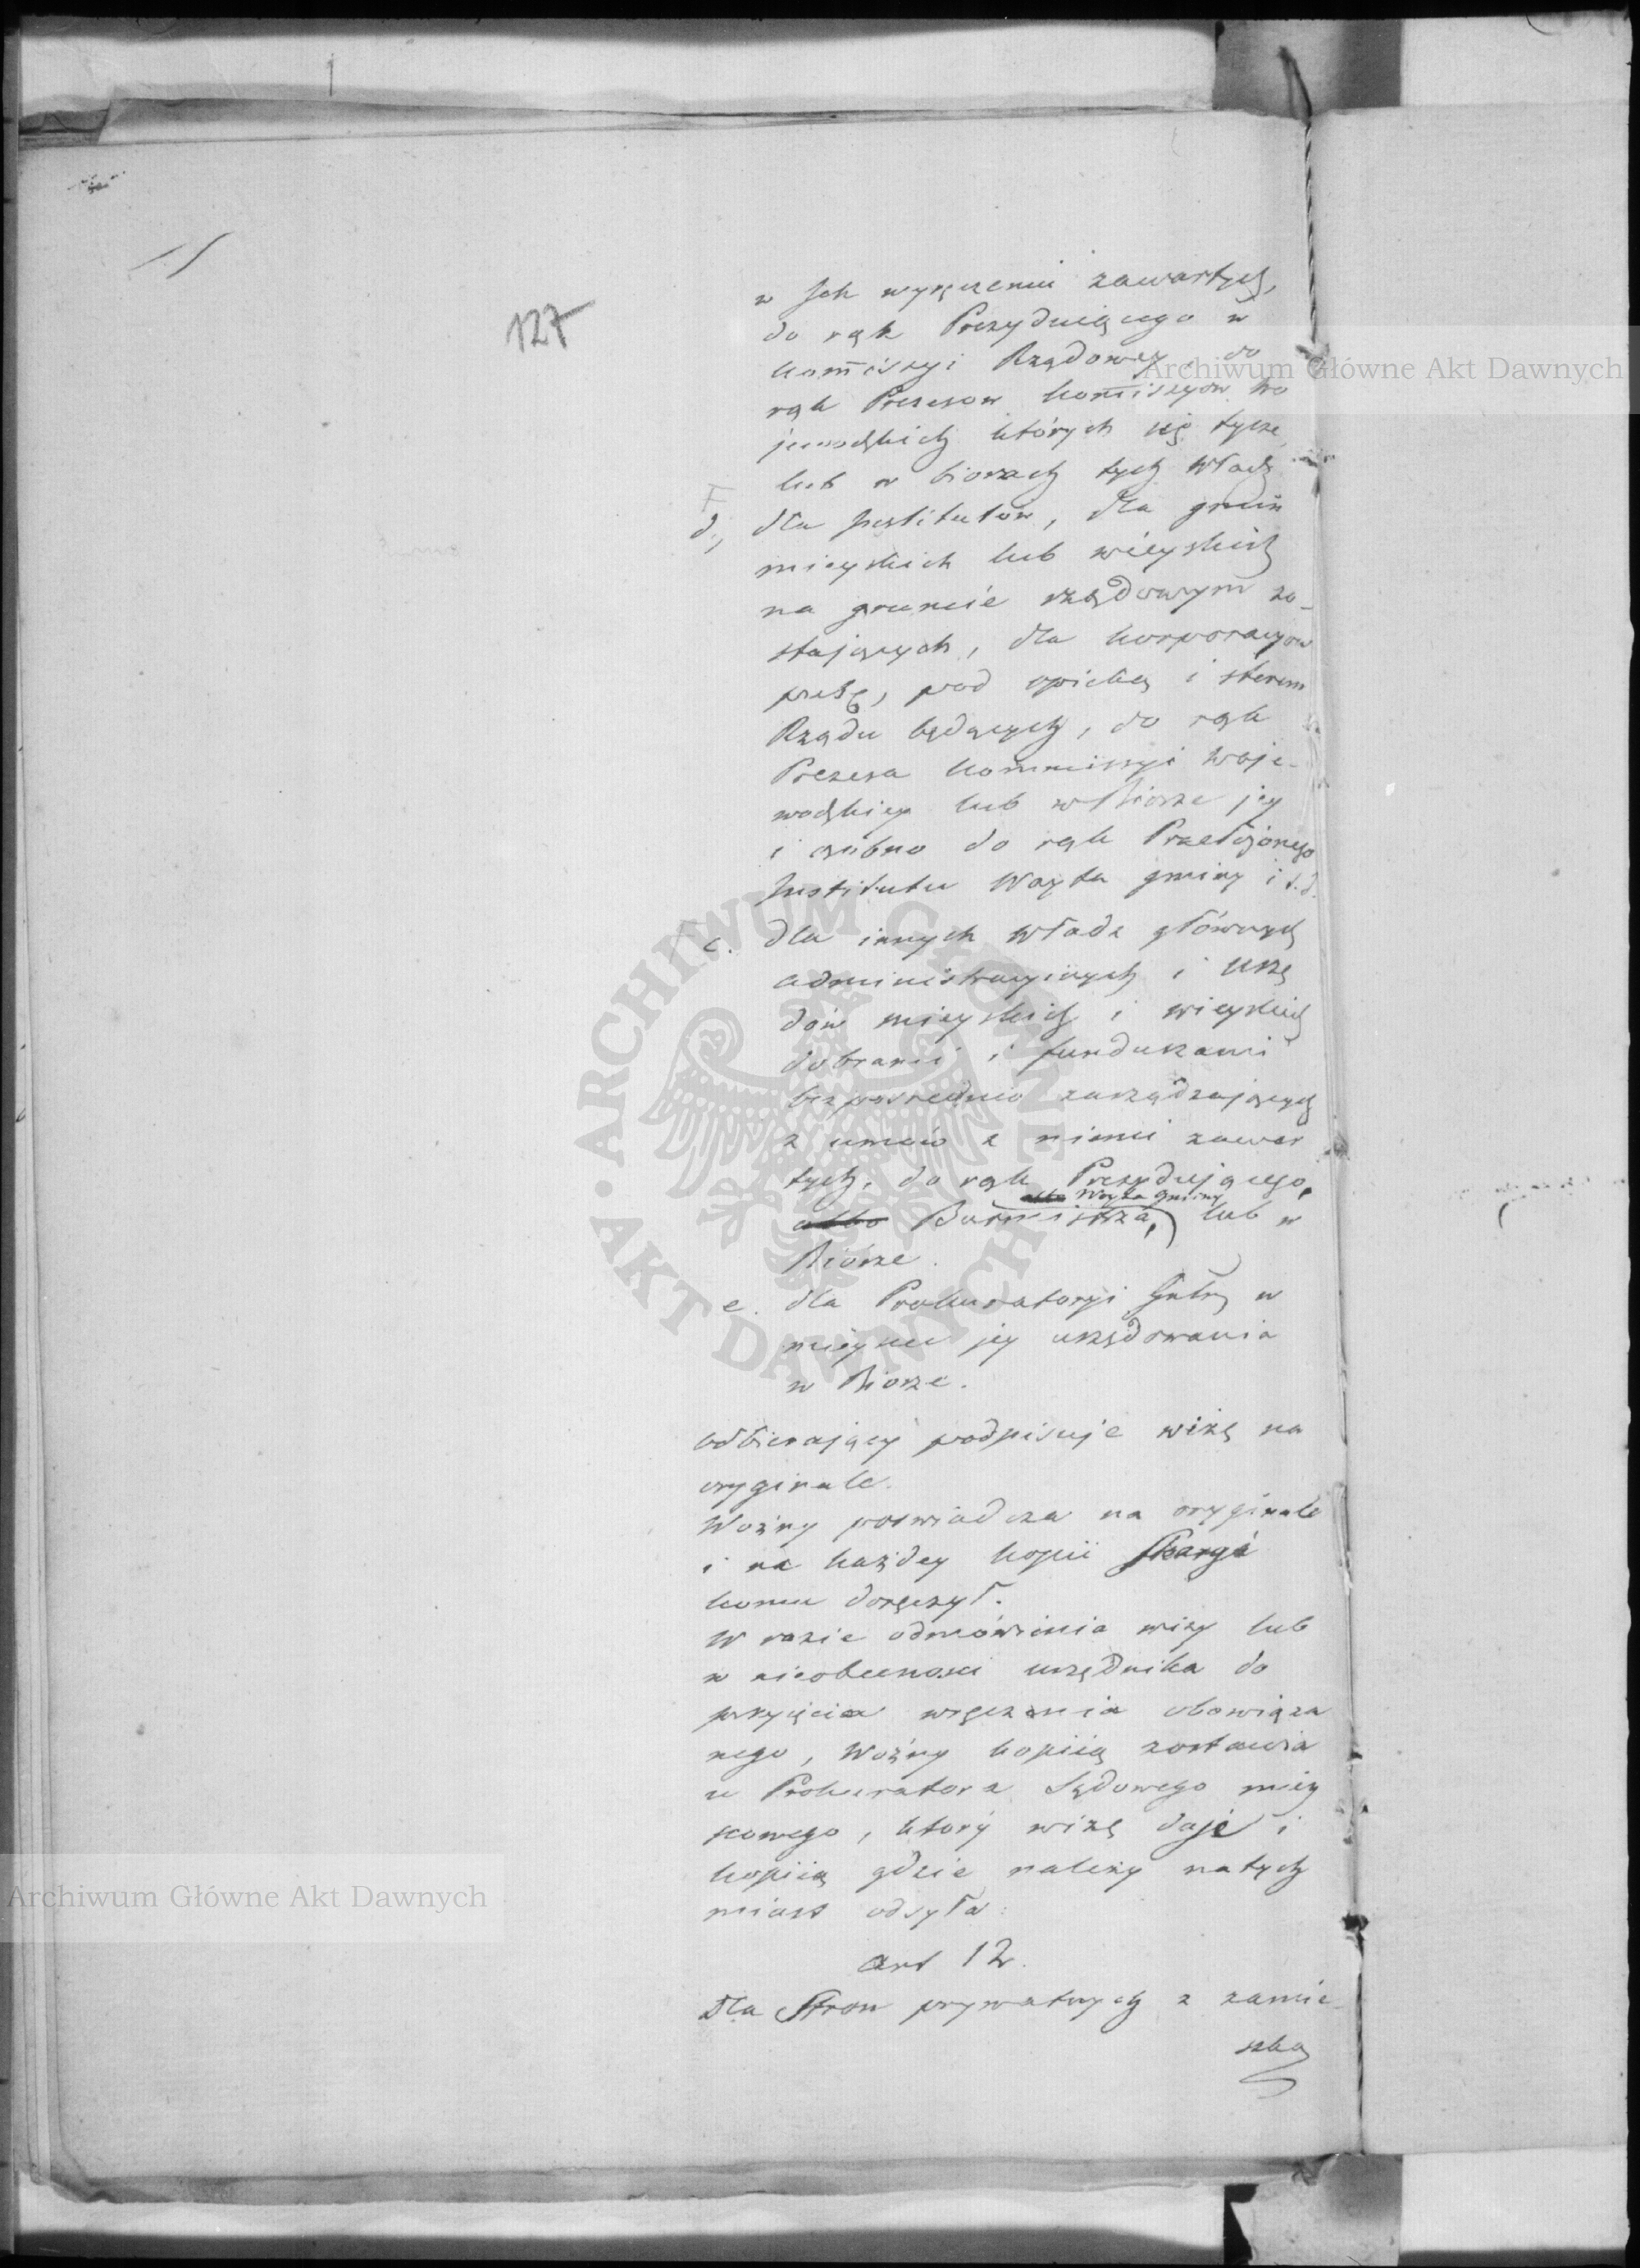 127
w Ich wyręczeniu zawartych,
do rąk Prezydującego w
kom̄issyi Rządowey, do
rąk Prezesów kom̄issyów wo
jewodzkich których się tycze
lub w biorach tych Władz
d., dla Institutów, dla gmin
mieyskich lub wieyskich
na gruncie rządowym zo-
stających, dla korporacyow
pod opieką i sterem
Rządu będących, do rąk
Prezesa kommissyi woje-
wodzkiey lub w Biorze jey
i osobno do rąk Przełożonego
Institutu Wóyta gminy i t.d.
dla innych Władz głównych
administracyinych i Urzę
dów mieyskich i wieyskich
dobrami i funduszami
bezpośrednio zarządzających
z umów z niemi zawar
tych, do rąk Prezydującego,
Woyta gminy
albo Burmistrza, lub w
Biórze.
e. dla Prokuratoryi Gnlny w
mieyscu jey urzędowania
w Biorze.
odbierający podpisuje wizę na
oryginale.
Woźny poświadcza na oryginale
i na każdey kopii skargi
komu doręczył.
W razie odmówienia wizy lub
w nieobecności urzędnika do
przyięcia wręczenia obowiąza
nego, Woźny kopiią zostawia
u Prokuratora Sądowego miey
scowego, który wizę daje i
kopiią gdzie należy natych
miast odsyła.
Art 12.
Dla Stron prywatnych z zamie-
szka
Archiwum Główne Akt Dawnych
Archiwum Główne Akt Dawnych
ARCHIWUM GŁÓWNE AKT DAWNYCH